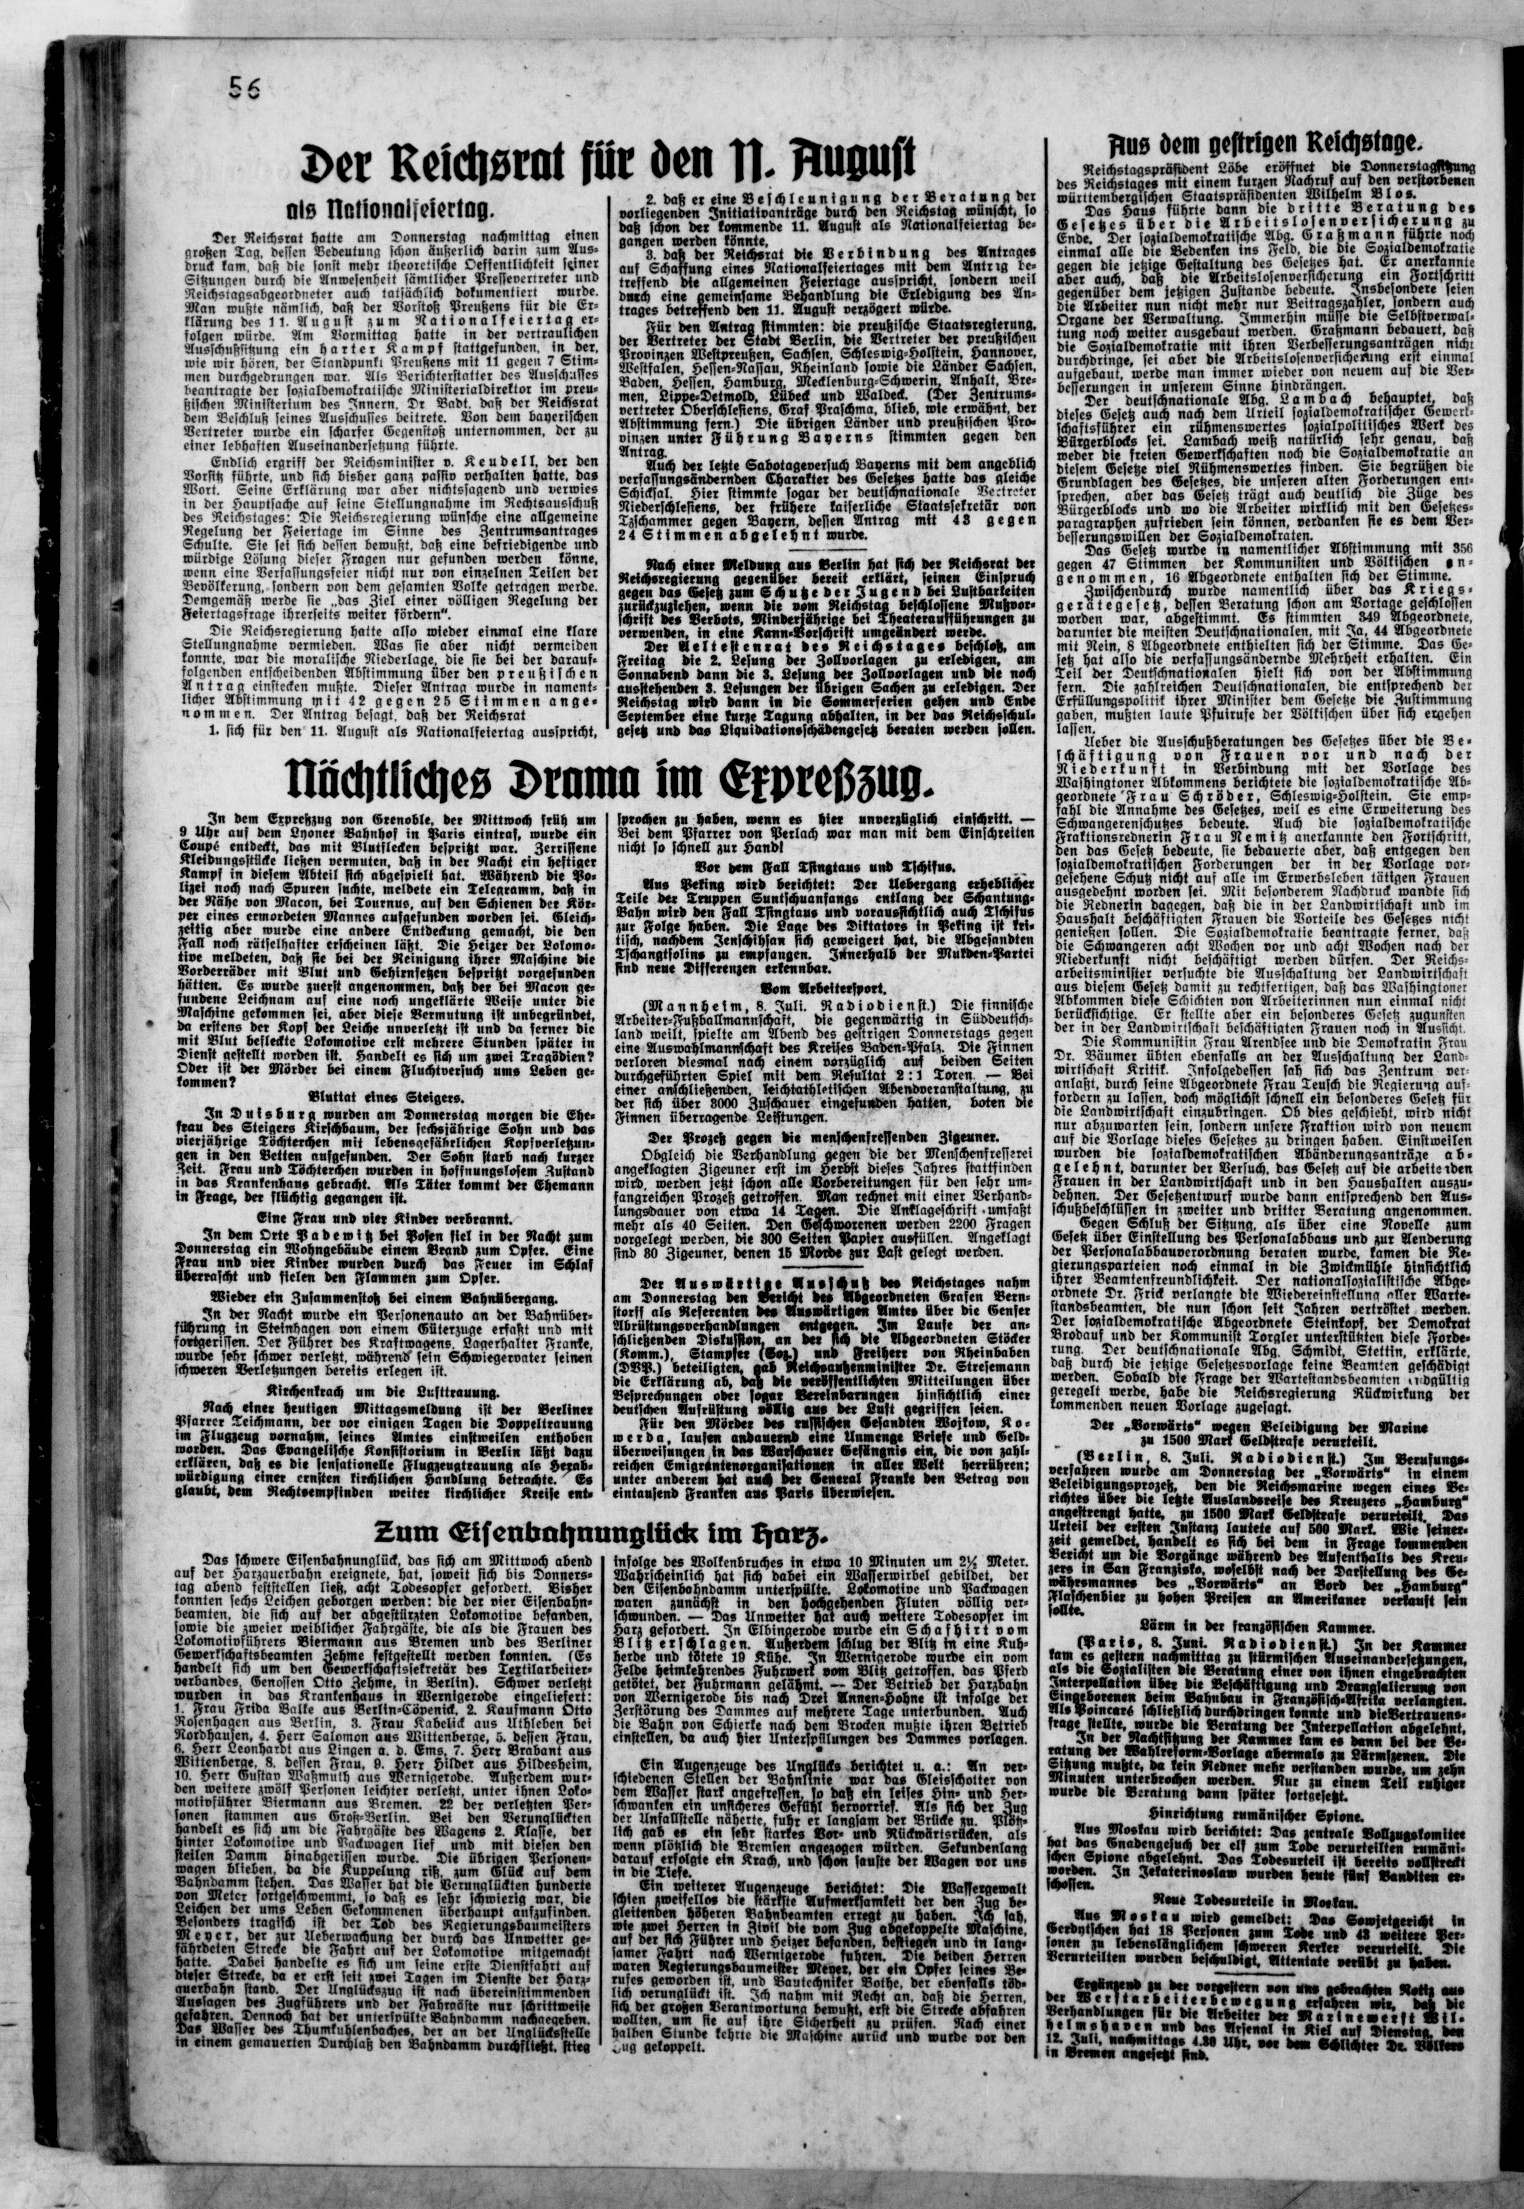 56
Der Reichsrat für den 11. August
als Nationalfeiertag.
Der Reichsrat hatte am Donnerstag nachmittag einen
großen Tag, dessen Bedeutung schon äußerlich darin zum Aus-
druck kam, daß die sonst mehr theoretische Oeffentlichkeit seiner
Sitzungen durch die Anwesenheit sämtlicher Pressevertreter und
Reichstagsabgeordneter auch tatsächlich dokumentiert wurde.
Man wußte nämlich, daß der Vorstoß Preußens für die Er-
klärung des 11. August zum Nationalfeiertag er-
folgen würde. Am Vormittag hatte in der vertraulichen
Ausschußsitzung ein harter Kampf stattgefunden, in der,
wie wir hören, der Standpunkt Preußens mit 11 gegen 7 Stim-
men durchgedrungen war. Als Berichterstatter des Ausschusses
beantragte der sozialdemokratische Ministerialdirektor im preu-
ßischen Ministerium des Innern, Dr. Badt, daß der Reichsrat
dem Beschluß seines Ausschusses beitrete. Von dem bayerischen
Vertreter wurde ein scharfer Gegenstoß unternommen, der zu
einer lebhaften Auseinandersetzung führte.
Endlich ergriff der Reichsminister v. Keudell, der den
Vorsitz führte, und sich bisher ganz passiv verhalten hatte, das
Wort. Seine Erklärung war aber nichtssagend und verwies
in der Hauptsache auf seine Stellungnahme im Rechtsausschuß
des Reichstages: Die Reichsregierung wünsche eine allgemeine
Regelung der Feiertage im Sinne des Zentrumsantrages
Schulte. Sie sei sich dessen bewußt, daß eine befriedigende und
würdige Lösung dieser Fragen nur gefunden werden könne,
wenn eine Verfassungsfeier nicht nur von einzelnen Teilen der
Bevölkerung, sondern von dem gesamten Volke getragen werde.
Demgemäß werde sie „das Ziel einer völligen Regelung der
Feiertagsfrage ihrerseits weiter fördern“.
Die Reichsregierung hatte also wieder einmal eine klare
Stellungnahme vermieden. Was sie aber nicht vermeiden
konnte, war die moralische Niederlage, die sie bei der darauf-
folgenden entscheidenden Abstimmung über den preußischen
Antrag einstecken mußte. Dieser Antrag wurde in nament-
licher Abstimmung mit 42 gegen 25 Stimmen ange-
nommen. Der Antrag besagt, daß der Reichsrat
1. sich für den 11. August als Nationalfeiertag ausspricht,
2. daß er eine Beschleunigung der Beratung der
vorliegenden Initiativanträge durch den Reichstag wünscht, so
daß schon der kommende 11. August als Nationalfeiertag be-
gangen werden könnte,
3. daß der Reichsrat die Verbindung des Antrages
auf Schaffung eines Nationalfeiertages mit dem Antrag be-
treffend die allgemeinen Feiertage ausspricht, sondern weil
durch eine gemeinsame Behandlung die Erledigung des An-
trages betreffend den 11. August verzögert würde.
Für den Antrag stimmten: die preußische Staatsregierung,
der Vertreter der Stadt Berlin, die Vertreter der preußischen
Provinzen Westpreußen, Sachsen, Schleswig-Holstein, Hannover,
Westfalen, Hessen-Nassau, Rheinland sowie die Länder Sachsen,
Baden, Hessen, Hamburg, Mecklenburg-Schwerin, Anhalt, Bre-
men, Lippe-Detmold, Lübeck und Waldeck. (Der Zentrums-
vertreter Oberschlesiens, Graf Praschma, blieb, wie erwähnt, der
Abstimmung fern.) Die übrigen Länder und preußischen Pro-
vinzen unter Führung Bayerns stimmten gegen den
Antrag.
Auch der letzte Sabotageversuch Bayerns mit dem angeblich
verfassungsändernden Charakter des Gesetzes hatte das gleiche
Schicksal. Hier stimmte sogar der deutschnationale Vertreter
Niederschlesiens, der frühere kaiserliche Staatssekretär von
Tzschammer gegen Bayern, dessen Antrag mit 43 gegen
24 Stimmen abgelehnt wurde.
Nach einer Meldung aus Berlin hat sich der Reichsrat der
Reichsregierung gegenüber bereit erklärt, seinen Einspruch
gegen das Gesetz zum Schutze der Jugend bei Lustbarkeiten
zurückzuziehen, wenn die vom Reichstag beschlossene Mußvor-
schrift des Verbots, Minderjährige bei Theateraufführungen zu
verwenden, in eine Kann-Vorschrift umgeändert werde.
Der Aeltestenrat des Reichstages beschloß, am
Freitag die 2. Lesung der Zollvorlagen zu erledigen, am
Sonnabend dann die 3. Lesung der Zollvorlagen und die noch
ausstehenden 3. Lesungen der übrigen Sachen zu erledigen. Der
Reichstag wird dann in die Sommerferien gehen und Ende
September eine kurze Tagung abhalten, in der das Reichsschul-
gesetz und das Liquidationsschädengesetz beraten werden sollen.
Nächtliches Drama im Expreßzug.
In dem Expreßzug von Grenoble, der Mittwoch früh um
9 Uhr auf dem Lyoner Bahnhof in Paris eintraf, wurde ein
Coupé entdeckt, das mit Blutflecken bespritzt war. Zerrissene
Kleidungsstücke ließen vermuten, daß in der Nacht ein heftiger
Kampf in diesem Abteil sich abgespielt hat. Während die Po-
lizei noch nach Spuren suchte, meldete ein Telegramm, daß in
der Nähe von Macon, bei Tournus, auf den Schienen der Kör-
per eines ermordeten Mannes aufgefunden worden sei. Gleich-
zeitig aber wurde eine andere Entdeckung gemacht, die den
Fall noch rätselhafter erscheinen läßt. Die Heizer der Lokomo-
tive meldeten, daß sie bei der Reinigung ihrer Maschine die
Vorderräder mit Blut und Gehirnfetzen bespritzt vorgefunden
hätten. Es wurde zuerst angenommen, daß der bei Macon ge-
fundene Leichnam auf eine noch ungeklärte Weise unter die
Maschine gekommen sei, aber diese Vermutung ist unbegründet,
da erstens der Kopf der Leiche unverletzt ist und da ferner die
mit Blut befleckte Lokomotive erst mehrere Stunden später in
Dienst gestellt worden ist. Handelt es sich um zwei Tragödien?
Oder ist der Mörder bei einem Fluchtversuch ums Leben ge-
kommen?
Bluttat eines Steigers.
In Duisburg wurden am Donnerstag morgen die Ehe-
frau des Steigers Kirschbaum, der sechsjährige Sohn und das
vierjährige Töchterchen mit lebensgefährlichen Kopfverletzun-
gen in den Betten aufgefunden. Der Sohn starb nach kurzer
Zeit. Frau und Töchterchen wurden in hoffnungslosem Zustand
in das Krankenhaus gebracht. Als Täter kommt der Ehemann
in Frage, der flüchtig gegangen ist.
Eine Frau und vier Kinder verbrannt.
In dem Orte Padewitz bei Posen fiel in der Nacht zum
Donnerstag ein Wohngebäude einem Brand zum Opfer. Eine
Frau und vier Kinder wurden durch das Feuer im Schlaf
überrascht und fielen den Flammen zum Opfer.
Wieder ein Zusammenstoß bei einem Bahnübergang.
In der Nacht wurde ein Personenauto an der Bahnüber-
führung in Steinhagen von einem Güterzuge erfaßt und mit
fortgerissen. Der Führer des Kraftwagens, Lagerhalter Franke,
wurde sehr schwer verletzt, während sein Schwiegervater seinen
schweren Verletzungen bereits erlegen ist.
Kirchenkrach um die Lufttrauung.
Nach einer heutigen Mittagsmeldung ist der Berliner
Pfarrer Teichmann, der vor einigen Tagen die Doppeltrauung
im Flugzeug vornahm, seines Amtes einstweilen enthoben
worden. Das Evangelische Konsistorium in Berlin läßt dazu
erklären, daß es die sensationelle Flugzeugtrauung als Herab-
würdigung einer ernsten kirchlichen Handlung betrachte. Es
glaubt, dem Rechtsempfinden weiter kirchlicher Kreise ent-
sprochen zu haben, wenn es hier unverzüglich einschritt. —
Bei dem Pfarrer von Perlach war man mit dem Einschreiten
nicht so schnell zur Hand!
Vor dem Fall Tsingtaus und Tschifus.
Aus Peking wird berichtet: Der Uebergang erheblicher
Teile der Truppen Suntschuanfangs entlang der Schantung-
Bahn wird den Fall Tsingtaus und voraussichtlich auch Tschifus
zur Folge haben. Die Lage des Diktators in Peking ist kri-
tisch, nachdem Jenschihsan sich geweigert hat, die Abgesandten
Tschangtsolins zu empfangen. Innerhalb der Mukden-Partei
sind neue Differenzen erkennbar.
Vom Arbeitersport.
(Mannheim, 8. Juli. Radiodienst.) Die finnische
Arbeiter-Fußballmannschaft, die gegenwärtig in Süddeutsch-
land weilt, spielte am Abend des gestrigen Donnerstags gegen
eine Auswahlmannschaft des Kreises Baden-Pfalz. Die Finnen
verloren diesmal nach einem vorzüglich auf beiden Seiten
durchgeführten Spiel mit dem Resultat 2:1 Toren. — Bei
einer anschließenden, leichtathletischen Abendveranstaltung, zu
der sich über 3000 Zuschauer eingefunden hatten, boten die
Finnen überragende Leistungen.
Der Prozeß gegen die menschenfressenden Zigeuner.
Obgleich die Verhandlung gegen die der Menschenfresserei
angeklagten Zigeuner erst im Herbst dieses Jahres stattfinden
wird, werden jetzt schon alle Vorbereitungen für den sehr um-
fangreichen Prozeß getroffen. Man rechnet mit einer Verhand-
lungsdauer von etwa 14 Tagen. Die Anklageschrift umfaßt
mehr als 40 Seiten. Den Geschworenen werden 2200 Fragen
vorgelegt werden, die 300 Seiten Papier ausfüllen. Angeklagt
sind 30 Zigeuner, denen 15 Morde zur Last gelegt werden.
Der Auswärtige Ausschuß des Reichstages nahm
am Donnerstag den Bericht des Abgeordneten Grafen Bern-
storff als Referenten des Auswärtigen Amtes über die Genfer
Abrüstungsverhandlungen entgegen. Im Laufe der an-
schließenden Diskussion, an der sich die Abgeordneten Stöcker
(Komm.), Stampfer (Soz.) und Freiherr von Rheinbaben
(DVP.) beteiligten, gab Reichsaußenminister Dr. Stresemann
die Erklärung ab, daß die veröffentlichten Mitteilungen über
Besprechungen oder sogar Vereinbarungen hinsichtlich einer
deutschen Aufrüstung völlig aus der Luft gegriffen seien.
Für den Mörder des russischen Gesandten Wojkow, Ko-
werda, laufen andauernd eine Unmenge Briefe und Geld-
überweisungen in das Warschauer Gefängnis ein, die von zahl-
reichen Emigrantenorganisationen in aller Welt herrühren;
unter anderem hat auch der General Franke den Betrag von
eintausend Franken aus Paris überwiesen.
Zum Eisenbahnunglück im Harz.
Das schwere Eisenbahnunglück, das sich am Mittwoch abend
auf der Harzquerbahn ereignete, hat, soweit sich bis Donners-
tag abend feststellen ließ, acht Todesopfer gefordert. Bisher
konnten sechs Leichen geborgen werden: die der vier Eisenbahn-
beamten, die sich auf der abgestürzten Lokomotive befanden,
sowie die zweier weiblicher Fahrgäste, die als die Frauen des
Lokomotivführers Biermann aus Bremen und des Berliner
Gewerkschaftsbeamten Zehme festgestellt werden konnten. (Es
handelt sich um den Gewerkschaftssekretär des Textilarbeiter-
verbandes, Genossen Otto Zehme, in Berlin). Schwer verletzt
wurden in das Krankenhaus in Wernigerode eingeliefert:
1. Frau Frida Balke aus Berlin-Cöpenick, 2. Kaufmann Otto
Rosenhagen aus Berlin, 3. Frau Kabelick aus Uthleben bei
Nordhausen, 4. Herr Salomon aus Wittenberge, 5. dessen Frau,
6. Herr Leonhardt aus Lingen a. d. Ems, 7. Herr Brabant aus
Wittenberge, 8. dessen Frau, 9. Herr Hilder aus Hildesheim,
10. Herr Gustav Waßmuth aus Wernigerode. Außerdem wur-
den weitere zwölf Personen leichter verletzt, unter ihnen Loko-
motivführer Biermann aus Bremen. 22 der verletzten Per-
sonen stammen aus Groß-Berlin. Bei den Verunglückten
handelt es sich um die Fahrgäste des Wagens 2. Klasse, der
hinter Lokomotive und Packwagen lief und mit diesen den
steilen Damm hinabgerissen wurde. Die übrigen Personen-
wagen blieben, da die Kuppelung riß, zum Glück auf dem
Bahndamm stehen. Das Wasser hat die Verunglückten hunderte
von Meter fortgeschwemmt, so daß es sehr schwierig war, die
Leichen der ums Leben Gekommenen überhaupt aufzufinden.
Besonders tragisch ist der Tod des Regierungsbaumeisters
Meyer, der zur Ueberwachung der durch das Unwetter ge-
fährdeten Strecke die Fahrt auf der Lokomotive mitgemacht
hatte. Dabei handelte es sich um seine erste Dienstfahrt auf
dieser Strecke, da er erst seit zwei Tagen im Dienste der Harz-
querbahn stand. Der Unglückszug ist nach übereinstimmenden
Aussagen des Zugführers und der Fahrgäste nur schrittweise
gefahren. Dennoch hat der unterspülte Bahndamm nachgegeben.
Das Wasser des Thumkuhlenbaches, der an der Unglücksstelle
in einem gemauerten Durchlaß den Bahndamm durchfließt, stieg
infolge des Wolkenbruches in etwa 10 Minuten um 2½ Meter.
Wahrscheinlich hat sich dabei ein Wasserwirbel gebildet, der
den Eisenbahndamm unterspülte. Lokomotive und Packwagen
waren zunächst in den hochgehenden Fluten völlig ver-
schwunden. — Das Unwetter hat auch weitere Todesopfer im
Harz gefordert. In Elbingerode wurde ein Schafhirt vom
Blitz erschlagen. Außerdem schlug der Blitz in eine Kuh-
herde und tötete 19 Kühe. In Wernigerode wurde ein vom
Felde heimkehrendes Fuhrwerk vom Blitz getroffen, das Pferd
getötet, der Fuhrmann gelähmt. — Der Betrieb der Harzbahn
von Wernigerode bis nach Drei Annen-Hohne ist infolge der
Zerstörung des Dammes auf mehrere Tage unterbunden. Auch
die Bahn von Schierke nach dem Brocken mußte ihren Betrieb
einstellen, da auch hier Unterspülungen des Dammes vorlagen.
Ein Augenzeuge des Unglücks berichtet u. a.: An ver-
schiedenen Stellen der Bahnlinie war das Gleisschotter von
dem Wasser stark angefressen, so daß ein leises Hin- und Her-
schwanken ein unsicheres Gefühl hervorrief. Als sich der Zug
der Unfallstelle näherte, fuhr er langsam der Brücke zu. Plötz-
lich gab es ein sehr starkes Vor- und Rückwärtsrücken, als
wenn plötzlich die Bremsen angezogen würden. Sekundenlang
darauf erfolgte ein Krach, und schon sauste der Wagen vor uns
in die Tiefe.
Ein weiterer Augenzeuge berichtet: Die Wassergewalt
schien zweifellos die stärkste Aufmerksamkeit der den Zug be-
gleitenden höheren Bahnbeamten erregt zu haben. Ich sah,
wie zwei Herren in Zivil die vom Zug abgekoppelte Maschine,
auf der sich Führer und Heizer befanden, bestiegen und in lang-
samer Fahrt nach Wernigerode fuhren. Die beiden Herren
waren Regierungsbaumeister Meyer, der ein Opfer seines Be-
rufes geworden ist, und Bautechniker Bothe, der ebenfalls töd-
lich verunglückt ist. Ich nahm mit Recht an, daß die Herren,
sich der großen Verantwortung bewußt, erst die Strecke abfahren
wollten, um sie auf ihre Sicherheit zu prüfen. Nach einer
halben Stunde kehrte die Maschine zurück und wurde vor den
Zug gekoppelt.
Aus dem gestrigen Reichstage.
Reichstagspräsident Löbe eröffnet die Donnerstagsitzung
des Reichstages mit einem kurzen Nachruf auf den verstorbenen
württembergischen Staatspräsidenten Wilhelm Blos.
Das Haus führte dann die dritte Beratung des
Gesetzes über die Arbeitslosenversicherung zu
Ende. Der sozialdemokratische Abg. Graßmann führte noch
einmal alle die Bedenken ins Feld, die die Sozialdemokratie
gegen die jetzige Gestaltung des Gesetzes hat. Er anerkannte
aber auch, daß die Arbeitslosenversicherung ein Fortschritt
gegenüber dem jetzigen Zustande bedeute. Insbesondere seien
die Arbeiter nun nicht mehr nur Beitragszahler, sondern auch
Organe der Verwaltung. Immerhin müsse die Selbstverwal-
tung noch weiter ausgebaut werden. Graßmann bedauert, daß
die Sozialdemokratie mit ihren Verbesserungsanträgen nicht
durchdringe, sei aber die Arbeitslosenversicherung erst einmal
aufgebaut, werde man immer wieder von neuem auf die Ver-
besserungen in unserem Sinne hindrängen.
Der deutschnationale Abg. Lambach behauptet, daß
dieses Gesetz auch nach dem Urteil sozialdemokratischer Gewerk-
schaftsführer ein rühmenswertes sozialpolitisches Werk des
Bürgerblocks sei. Lambach weiß natürlich sehr genau, daß
weder die freien Gewerkschaften noch die Sozialdemokratie an
diesem Gesetze viel Rühmenswertes finden. Sie begrüßen die
Grundlagen des Gesetzes, die unseren alten Forderungen ent-
sprechen, aber das Gesetz trägt auch deutlich die Züge des
Bürgerblocks und wo die Arbeiter wirklich mit den Gesetzes-
paragraphen zufrieden sein können, verdanken sie es dem Ver-
besserungswillen der Sozialdemokraten.
Das Gesetz wurde in namentlicher Abstimmung mit 356
gegen 47 Stimmen der Kommunisten und Völkischen an-
genommen, 16 Abgeordnete enthalten sich der Stimme.
Zwischendurch wurde namentlich über das Kriegs-
gerätegesetz, dessen Beratung schon am Vortage geschlossen
worden war, abgestimmt. Es stimmten 349 Abgeordnete,
darunter die meisten Deutschnationalen, mit Ja, 44 Abgeordnete
mit Nein, 8 Abgeordnete enthielten sich der Stimme. Das Ge-
setz hat also die verfassungsändernde Mehrheit erhalten. Ein
Teil der Deutschnationalen hielt sich von der Abstimmung
fern. Die zahlreichen Deutschnationalen, die entsprechend der
Erfüllungspolitik ihrer Minister dem Gesetze die Zustimmung
gaben, mußten laute Pfuirufe der Völkischen über sich ergehen
lassen.
Ueber die Ausschußberatungen des Gesetzes über die Be-
schäftigung von Frauen vor und nach der
Niederkunft in Verbindung mit der Vorlage des
Washingtoner Abkommens berichtete die sozialdemokratische Ab-
geordnete Frau Schröder, Schleswig-Holstein. Sie emp-
fahl die Annahme des Gesetzes, weil es eine Erweiterung des
Schwangerenschutzes bedeute. Auch die sozialdemokratische
Fraktionsrednerin Frau Nemitz anerkannte den Fortschritt,
den das Gesetz bedeute, sie bedauerte aber, daß entgegen den
sozialdemokratischen Forderungen der in der Vorlage vor-
gesehene Schutz nicht auf alle im Erwerbsleben tätigen Frauen
ausgedehnt worden sei. Mit besonderem Nachdruck wandte sich
die Rednerin dagegen, daß die in der Landwirtschaft und im
Haushalt beschäftigten Frauen die Vorteile des Gesetzes nicht
genießen sollen. Die Sozialdemokratie beantragte ferner, daß
die Schwangeren acht Wochen vor und acht Wochen nach der
Niederkunft nicht beschäftigt werden dürfen. Der Reichs-
arbeitsminister versuchte die Ausschaltung der Landwirtschaft
aus diesem Gesetz damit zu rechtfertigen, daß das Washingtoner
Abkommen diese Schichten von Arbeiterinnen nun einmal nicht
berücksichtige. Er stellte aber ein besonderes Gesetz zugunsten
der in der Landwirtschaft beschäftigten Frauen noch in Aussicht.
Die Kommunistin Frau Arendsee und die Demokratin Frau
Dr. Bäumer übten ebenfalls an der Ausschaltung der Land-
wirtschaft Kritik. Infolgedessen sah sich das Zentrum ver-
anlaßt, durch seine Abgeordnete Frau Teusch die Regierung auf-
fordern zu lassen, doch möglichst schnell ein besonderes Gesetz für
die Landwirtschaft einzubringen. Ob dies geschieht, wird nicht
nur abzuwarten sein, sondern unsere Fraktion wird von neuem
auf die Vorlage dieses Gesetzes zu dringen haben. Einstweilen
wurden die sozialdemokratischen Abänderungsanträge ab-
gelehnt, darunter der Versuch, das Gesetz auf die arbeitenden
Frauen in der Landwirtschaft und in den Haushalten auszu-
dehnen. Der Gesetzentwurf wurde dann entsprechend den Aus-
schußbeschlüssen in zweiter und dritter Beratung angenommen.
Gegen Schluß der Sitzung, als über eine Novelle zum
Gesetz über Einstellung des Personalabbaus und zur Aenderung
der Personalabbauverordnung beraten wurde, kamen die Re-
gierungsparteien noch einmal in die Zwickmühle hinsichtlich
ihrer Beamtenfreundlichkeit. Der nationalsozialistische Abge-
ordnete Dr. Frick verlangte die Wiedereinstellung aller Warte-
standsbeamten, die nun schon seit Jahren vertröstet werden.
Der sozialdemokratische Abgeordnete Steinkopf, der Demokrat
Brodauf und der Kommunist Torgler unterstützten diese Forde-
rung. Der deutschnationale Abg. Schmidt, Stettin, erklärte,
daß durch die jetzige Gesetzesvorlage keine Beamten geschädigt
werden. Sobald die Frage der Wartestandsbeamten endgültig
geregelt werde, habe die Reichsregierung Rückwirkung der
kommenden neuen Vorlage zugesagt.
Der „Vorwärts“ wegen Beleidigung der Marine
zu 1500 Mark Geldstrafe verurteilt.
(Berlin, 8. Juli. Radiodienst.) Im Berufungs-
verfahren wurde am Donnerstag der „Vorwärts“ in einem
Beleidigungsprozeß, den die Reichsmarine wegen eines Be-
richtes über die letzte Auslandsreise des Kreuzers „Hamburg“
angestrengt hatte, zu 1500 Mark Geldstrafe verurteilt. Das
Urteil der ersten Instanz lautete auf 500 Mark. Wie seiner-
zeit gemeldet, handelt es sich bei dem in Frage kommenden
Bericht um die Vorgänge während des Aufenthalts des Kreu-
zers in San Franzisko, woselbst nach der Darstellung des Ge-
währsmannes des „Vorwärts“ an Bord der „Hamburg“
Flaschenbier zu hohen Preisen an Amerikaner verkauft sein
sollte.
Lärm in der französischen Kammer.
(Paris, 8. Juni. Radiodienst.) In der Kammer
kam es gestern nachmittag zu stürmischen Auseinandersetzungen,
als die Sozialisten die Beratung einer von ihnen eingebrachten
Interpellation über die Beschäftigung und Drangsalierung von
Eingeborenen beim Bahnbau in Französisch-Afrika verlangten.
Als Poincaré schließlich durchdringen konnte und die Vertrauens-
frage stellte, wurde die Beratung der Interpellation abgelehnt.
In der Nachtsitzung der Kammer kam es dann bei der Be-
ratung der Wahlreform-Vorlage abermals zu Lärmszenen. Die
Sitzung mußte, da kein Redner mehr verstanden wurde, um zehn
Minuten unterbrochen werden. Nur zu einem Teil ruhiger
wurde die Beratung dann später fortgesetzt.
Hinrichtung rumänischer Spione.
Aus Moskau wird berichtet: Das zentrale Vollzugskomitee
hat das Gnadengesuch der elf zum Tode verurteilten rumäni-
schen Spione abgelehnt. Das Todesurteil ist bereits vollstreckt
worden. In Jekaterinoslaw wurden heute fünf Banditen er-
schossen.
Neue Todesurteile in Moskau.
Aus Moskau wird gemeldet: Das Sowjetgericht in
Gerdytschen hat 18 Personen zum Tode und 43 weitere Per-
sonen zu lebenslänglichem schweren Kerker verurteilt. Die
Verurteilten wurden beschuldigt, Attentate verübt zu haben.
Ergänzend zu der vorgestern von uns gebrachten Notiz aus
der Werftarbeiterbewegung erfahren wir, daß die
Verhandlungen für die Arbeiter der Marinewerft Wil-
helmshaven und das Arsenal in Kiel auf Dienstag, den
12. Juli, nachmittags 4.30 Uhr, vor dem Schlichter Dr. Völkers
in Bremen angesetzt sind.